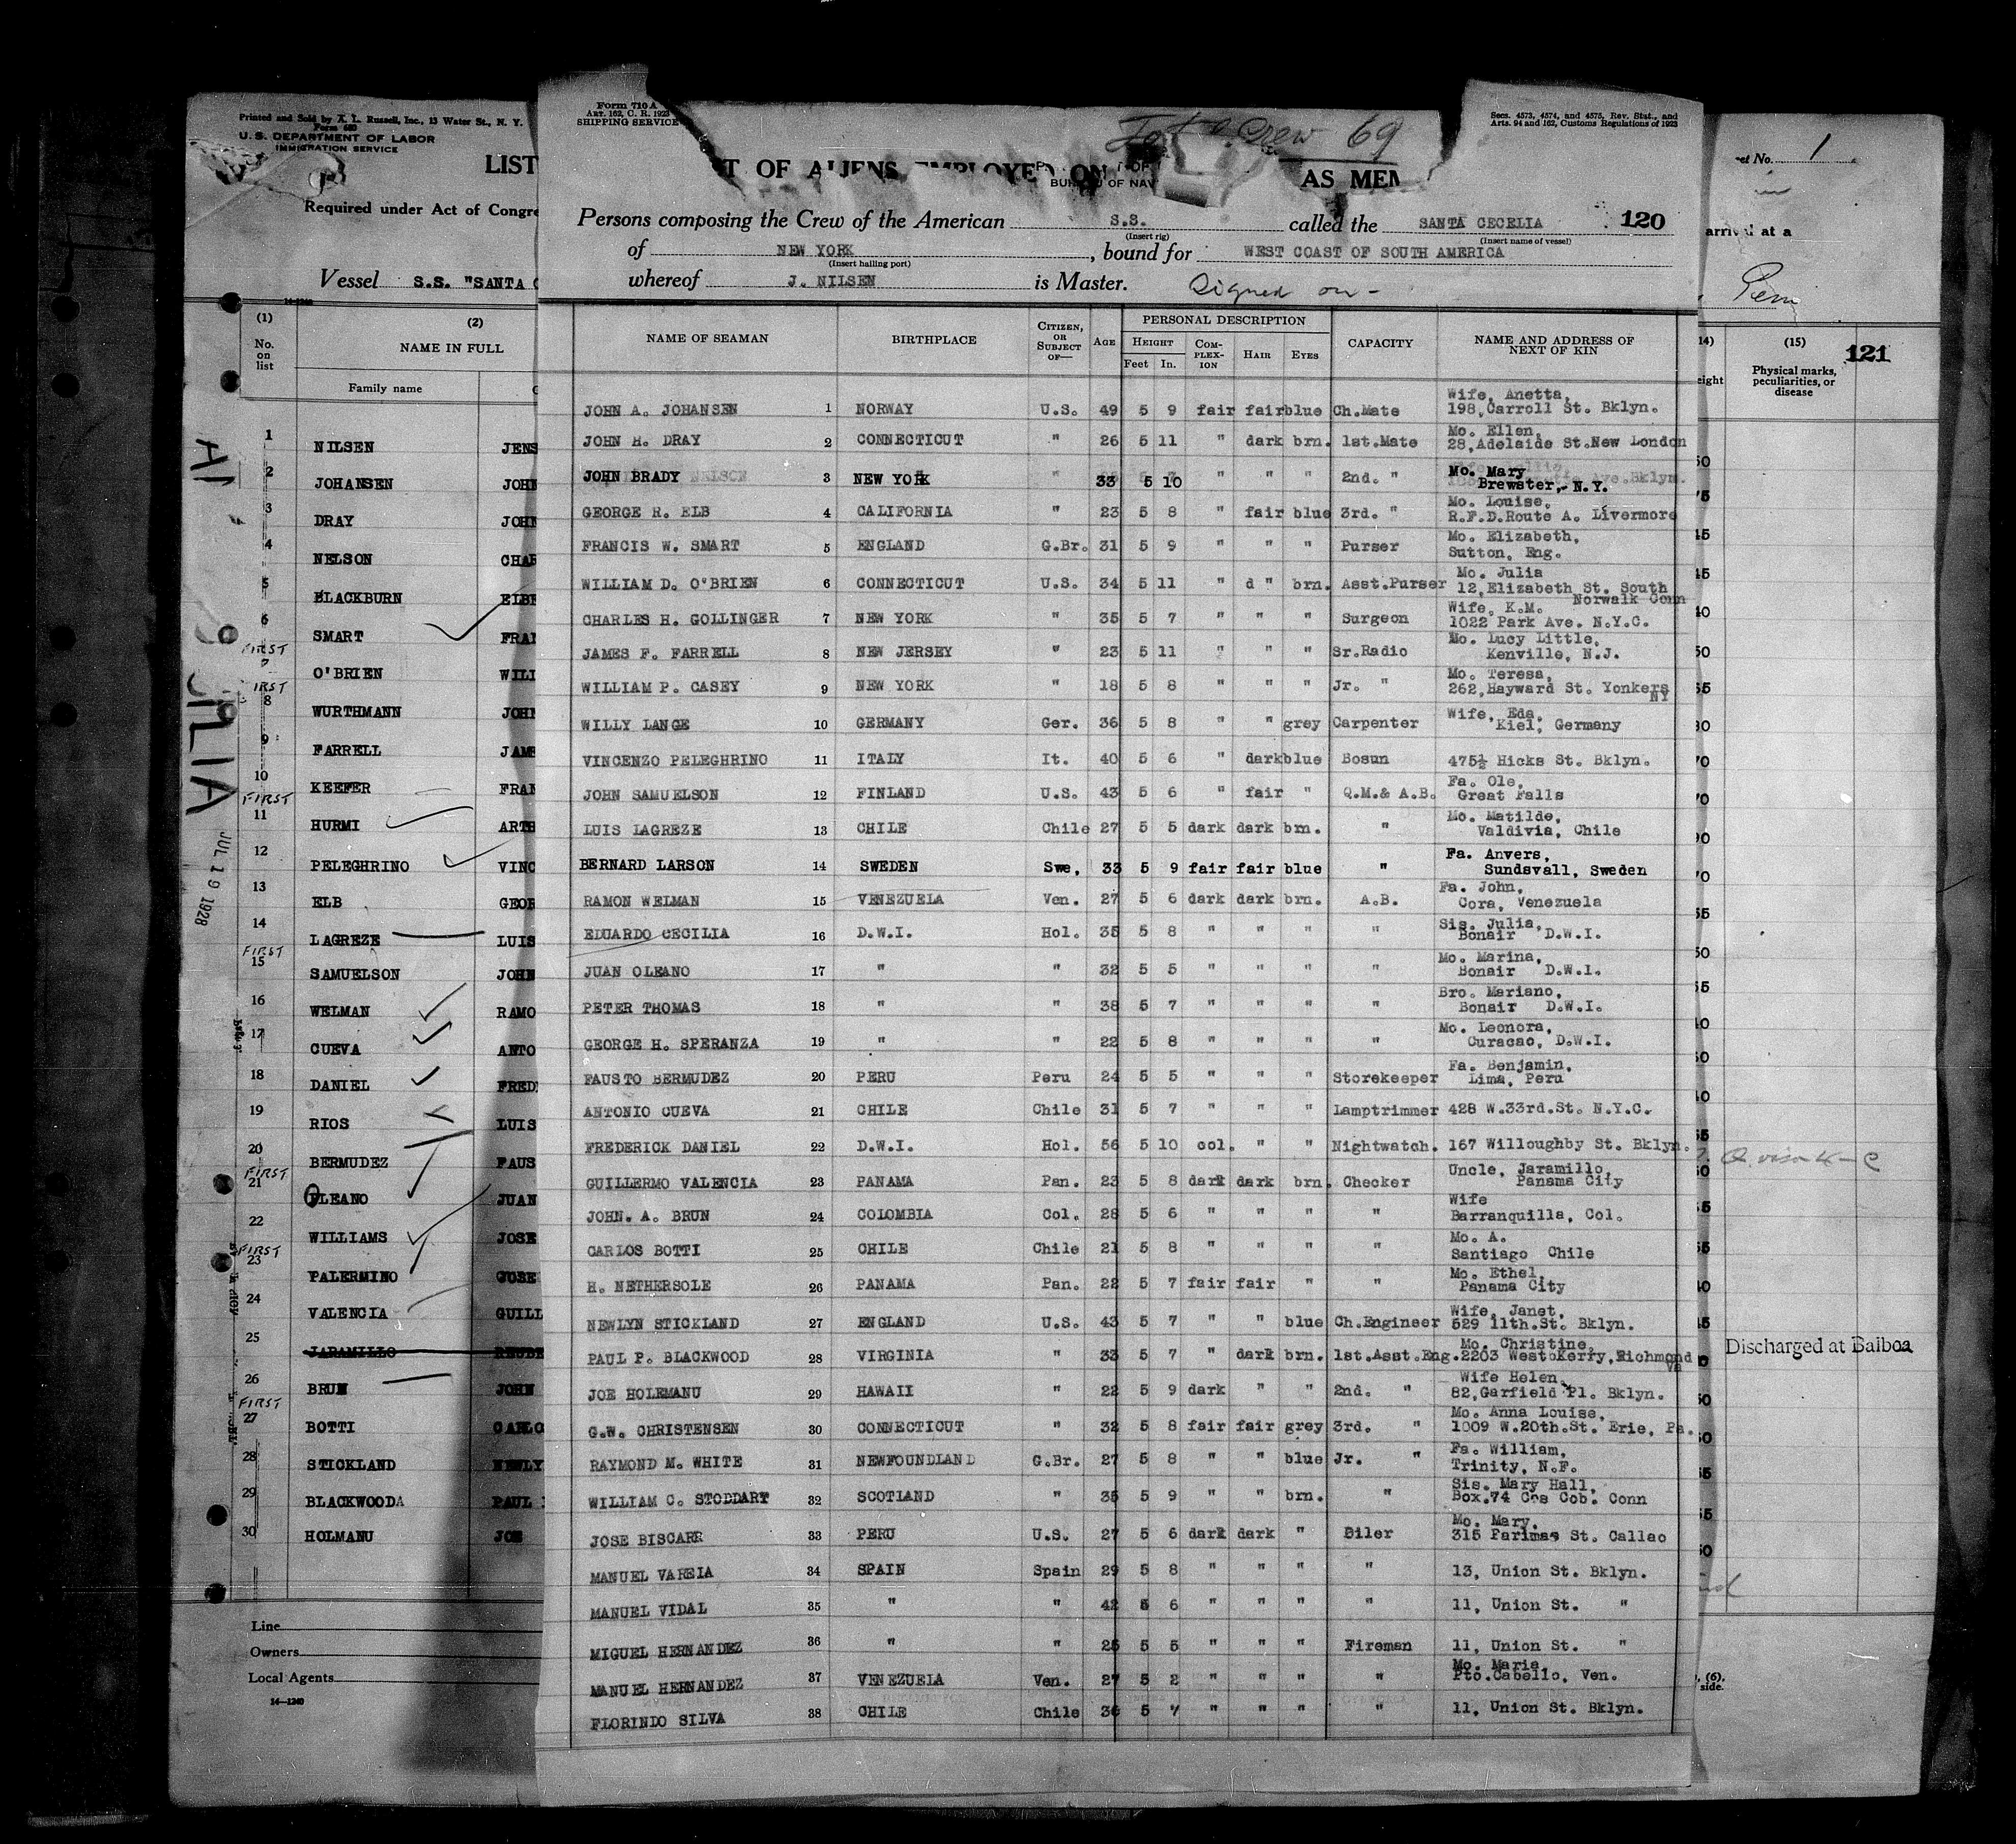 Printed and Sold by X. L. Russell, Inc., 13 Water St., N. Y.
Form 680
U. S. DEPARTMENT OF LABOR
IMMIGRATION SERVICE
LIST
Required under Act of Congre
Vessel S.S. "SANTA C
14-1240
(1) (2)
No. on list
NAME IN FULL
Family name
1 NILSEN JENS
2 JOHANSEN JOHN
3 DRAY JOHN
4 NELSON CHAR
5 BLACKBURN ELBE
6 SMART FRAN
FIRST
7 O'BRIEN WILI
FIRST
8 WURTHMANN JOHN
9 FARRELL JAME
10 KEEFER FRAN
FIRST
11 HURMI ARTH
12 PELEGHRINO VINC
13 ELB GEOR
14 LAGREZE LUIS
FIRST
15 SAMUELSON JOHN
16 WELMAN RAMO
17 CUEVA ANTO
18 DANIEL FRED
19 RIOS LUIS
20 BERMUDEZ FAUS
FIRST
21 OLEANO JUAN
22 WILLIAMS JOSE
FIRST
23 PALERMINO JOSE
24 VALENCIA GUILL
25 JARAMILLO REUBE
26 BRUN JOHN
FIRST
27 BOTTI CARLO
28 STICKLAND NEWLY
29 BLACKWOODA PAUL
30 HOLMANU JOE
Line
Owners
Local Agents
14-1240
JUL 19 1928
Form 710 A
ART. 162, C. R. 1923
SHIPPING SERVICE
Total Crew 69
Secs. 4573, 4574, and 4575, Rev. Stat., and
Arts. 94 and 162, Customs Regulations of 1923
T OF ALIENS EMPLOYED ON AS MEM
BUREAU OF NAV
Persons composing the Crew of the American S.S. called the SANTA CECELIA 120
(Insert rig) (Insert name of vessel)
of NEW YORK, bound for WEST COAST OF SOUTH AMERICA
(Insert hailing port)
whereof J. NILSEN is Master. Signed on -
NAME OF SEAMAN BIRTHPLACE CITIZEN, OR SUBJECT OF— AGE PERSONAL DESCRIPTION CAPACITY NAME AND ADDRESS OF NEXT OF KIN
HEIGHT COMPLEXION HAIR EYES
Feet In.
JOHN A. JOHANSEN 1 NORWAY U.S. 49 5 9 fair fair blue Ch.Mate Wife, Anetta, 198, Carroll St. Bklyn.
JOHN H. DRAY 2 CONNECTICUT " 26 5 11 " dark brn. 1st.Mate Mo. Ellen, 28, Adelaide St. New London
JOHN BRADY 3 NEW YORK " 33 5 10 " " " 2nd. " Mo. Mary Brewster,- N.Y.
GEORGE R. ELB 4 CALIFORNIA " 23 5 8 " fair blue 3rd. " Mo. Louise, R.F.D.Route A. Livermore
FRANCIS W. SMART 5 ENGLAND G.Br. 31 5 9 " " " Purser Mo. Elizabeth, Sutton, Eng.
WILLIAM D. O'BRIEN 6 CONNECTICUT U.S. 34 5 11 " d " brn. Asst.Purser Mo. Julia 12, Elizabeth St. South Norwalk Conn
CHARLES H. GOLLINGER 7 NEW YORK " 35 5 7 " " " Surgeon Wife, K.M. 1022 Park Ave. N.Y.C.
JAMES F. FARRELL 8 NEW JERSEY " 23 5 11 " " " Sr.Radio Mo. Lucy Little, Kenville, N.J.
WILLIAM P. CASEY 9 NEW YORK " 18 5 8 " " " Jr. " Mo. Teresa, 262, Hayward St. Yonkers NY
WILLY LANGE 10 GERMANY Ger. 36 5 8 " " grey Carpenter Wife, Eda, Kiel, Germany
VINCENZO PELEGHRINO 11 ITALY It. 40 5 6 " dark blue Bosun 475½ Hicks St. Bklyn.
JOHN SAMUELSON 12 FINLAND U.S. 43 5 6 " fair " Q.M.& A.B. Fa. Ole, Great Falls
LUIS LAGREZE 13 CHILE Chile 27 5 5 dark dark brn. " Mo. Matilde, Valdivia, Chile
BERNARD LARSON 14 SWEDEN Swe. 33 5 9 fair fair blue " Fa. Anvers, Sundsvall, Sweden
RAMON WELMAN 15 VENEZUELA Ven. 27 5 6 dark dark brn. A.B. Fa. John, Cora, Venezuela
EDUARDO CECILIA 16 D.W.I. Hol. 35 5 8 " " " " Sis. Julia, Bonair D.W.I.
JUAN OLEANO 17 " " 32 5 5 " " " " Mo. Marina, Bonair D.W.I.
PETER THOMAS 18 " " 38 5 7 " " " " Bro. Mariano, Bonair D.W.I.
GEORGE H. SPERANZA 19 " " 22 5 8 " " " " Mo. Leonora, Curacao, D.W.I.
FAUSTO BERMUDEZ 20 PERU Peru 24 5 5 " " " Storekeeper Fa. Benjamin, Lima, Peru
ANTONIO CUEVA 21 CHILE Chile 31 5 7 " " " Lamptrimmer 428 W.33rd.St. N.Y.C.
FREDERICK DANIEL 22 D.W.I. Hol. 56 5 10 col. " " Nightwatch. 167 Willoughby St. Bklyn.
GUILLERMO VALENCIA 23 PANAMA Pan. 23 5 8 dark dark brn. Checker Uncle, Jaramillo, Panama City
JOHN. A. BRUN 24 COLOMBIA Col. 28 5 6 " " " " Wife Barranquilla, Col.
CARLOS BOTTI 25 CHILE Chile 21 5 8 " " " " Mo. A. Santiago Chile
H. NETHERSOLE 26 PANAMA Pan. 22 5 7 fair fair " " Mo. Ethel, Panama City
NEWLYN STICKLAND 27 ENGLAND U.S. 43 5 7 " " blue Ch.Engineer Wife, Janet, 529 11th.St. Bklyn.
PAUL P. BLACKWOOD 28 VIRGINIA " 33 5 7 " dark brn. 1st.Asst.Eng. Mo. Christine, 2203 West Kerry, Richmond Va
JOE HOLEMANU 29 HAWAII " 22 5 9 dark " " 2nd. " Wife Helen, 82, Garfield Pl. Bklyn.
G.W. CHRISTENSEN 30 CONNECTICUT " 32 5 8 fair fair grey 3rd. " Mo. Anna Louise, 1009 W.20th.St. Erie, Pa.
RAYMOND M. WHITE 31 NEWFOUNDLAND G.Br. 27 5 8 " " blue Jr. " Fa. William, Trinity, N.F.
WILLIAM C. STODDART 32 SCOTLAND " 35 5 9 " " brn. " Sis. Mary Hall, Box.74 Cos Cob. Conn
JOSE BISCARR 33 PERU U.S. 27 5 6 dark dark " Oiler Mo. Mary, 315 Parimas St. Callao
MANUEL VAREIA 34 SPAIN Spain 29 5 8 " " " " 13, Union St. Bklyn.
MANUEL VIDAL 35 " " 42 5 6 " " " " 11, Union St. "
MIGUEL HERNANDEZ 36 " " 25 5 5 " " " Fireman 11, Union St. "
MANUEL HERNANDEZ 37 VENEZUELA Ven. 27 5 2 " " " " Mo. Maria, Pto.Cabello, Ven.
FLORINDO SILVA 38 CHILE Chile 36 5 7 " " " " 11, Union St. Bklyn.
et No. 1
arrived at a
14) (15) 121
eight
Physical marks, peculiarities, or disease
Discharged at Balboa
, (6).
side.